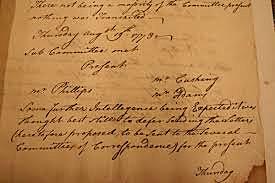 There not being a majority of the Committee present
nothing was Transacted.
Thursday augt 19th 1773.
Sub Committee met.
Present
mr Phillips mr Cushing
mr Adams
Some further Intelligence being Expected it was
thought best still to defer sending the Letter
(heretofore proposed to be sent to the several
Committees of Correspondence) for the present
Thursday